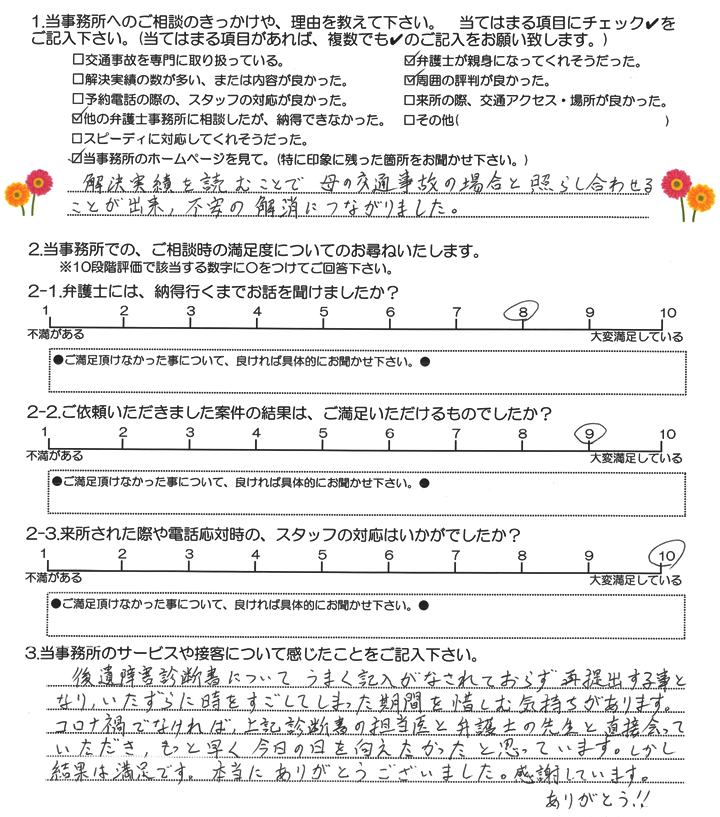 1.当事務所へのご相談のきっかけや、理由を教えて下さい。　当てはまる項目にチェック✔を
ご記入下さい。(当てはまる項目があれば、複数でも✔のご記入をお願い致します。)
□交通事故を専門に取り扱っている。
☑弁護士が親身になってくれそうだった。
□解決実績の数が多い、または内容が良かった。
☑周囲の評判が良かった。
□予約電話の際の、スタッフの対応が良かった。
□来所の際、交通アクセス・場所が良かった。
☑他の弁護士事務所に相談したが、納得できなかった。
□その他(　　　　　)
□スピーディに対応してくれそうだった。
☑当事務所のホームページを見て。(特に印象に残った箇所をお聞かせ下さい。)
解決実績を読むことで 母の交通事故の場合と照らし合わせる
ことが出来, 不安の解消につながりました。
2.当事務所での、ご相談時の満足度についてのお尋ねいたします。
※10段階評価で該当する数字に○をつけてご回答下さい。
2-1.弁護士には、納得行くまでお話を聞けましたか？
1 2 3 4 5 6 7 8 9 10
不満がある 大変満足している
●ご満足頂けなかった事について、良ければ具体的にお聞かせ下さい。●
2-2.ご依頼いただきました案件の結果は、ご満足いただけるものでしたか？
1 2 3 4 5 6 7 8 9 10
不満がある 大変満足している
●ご満足頂けなかった事について、良ければ具体的にお聞かせ下さい。●
2-3.来所された際や電話応対時の、スタッフの対応はいかがでしたか？
1 2 3 4 5 6 7 8 9 10
不満がある 大変満足している
●ご満足頂けなかった事について、良ければ具体的にお聞かせ下さい。●
3.当事務所のサービスや接客について感じたことをご記入下さい。
後遺障害診断書について うまく記入がなされておらず 再提出する事と
なり, いたずらに時をすごしてしまった期間を惜しむ気持ちがあります。
コロナ禍でなければ, 上記診断書の担当医と弁護士の先生と直接会って
いただき, もっと早く今日の日を向えたかったと思っています。しかし
結果は満足です。本当にありがとうございました。感謝しています。
ありがとう!!